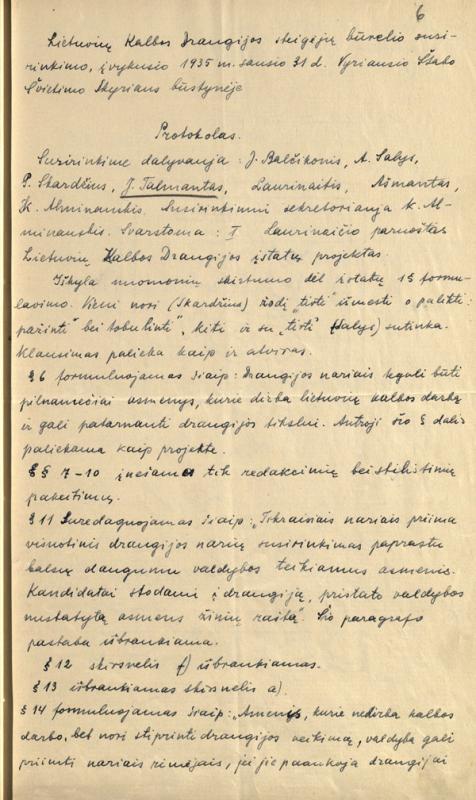 6
Lietuvių Kalbos Draugijos steigėjų būrelio susi-
rinkimo, įvykusio 1935 m. sausio 31 d. Vyriausio Štabo
Švietimo Skyriaus būstynėje
Protokolas.
Susirinkime dalyvauja: J. Balčikonis, A. Salys,
P. Skardžius, J. Talmantas, Laurinaitis, Ašmantas,
K. Alminauskis. Susirinkimui sekretoriauja K. Al-
minauskis. Svarstoma: I Laurinaičio paruoštas
Lietuvių Kalbos Draugijos įstatų projektas.
Iškyla nuomonių skirtumo dėl įstatų 1 § formu-
lavimo. Vieni nori (Skardžius) žodį „tirti" išmesti o palikti:
pažinti" bei tobulinti", kiti ir su „tirti" (Salys) sutinka.
Klausimas palieka kaip ir atviras.
§ 6 formuluojamas šiaip: Draugijos nariais tegali būti
pilnamečiai asmenys, kurie dirba lietuvių kalbos darbą
ir gali patarnauti draugijos tikslui. Antroji šio § dalis
paliekama kaip projekte.
§§ 7-10 įnešama tik redakcinių bei stilistinių
pakeitimų.
§ 11 Suredaguojamas šiaip: „Tikraisiais nariais priima
visuotinis draugijos narių susirinkimas paprastu
balsų daugumu valdybos teikiamus asmenis.
Kandidatai stodami į draugiją, pristato valdybos
nustatytą asmens žinių raštą". Šio paragrafo
pastaba išbraukiama.
§ 12 skirsnelis f) išbraukiamas.
§ 13 išbraukiamas skirsnelis a).
§ 14 formuluojamas šiaip: „Asmenis, kurie nedirba kalbos
darbo, bet nori stiprinti draugijos veikimą, valdyba gali
priimti nariais rėmėjais, jei jie paaukoja draugijai